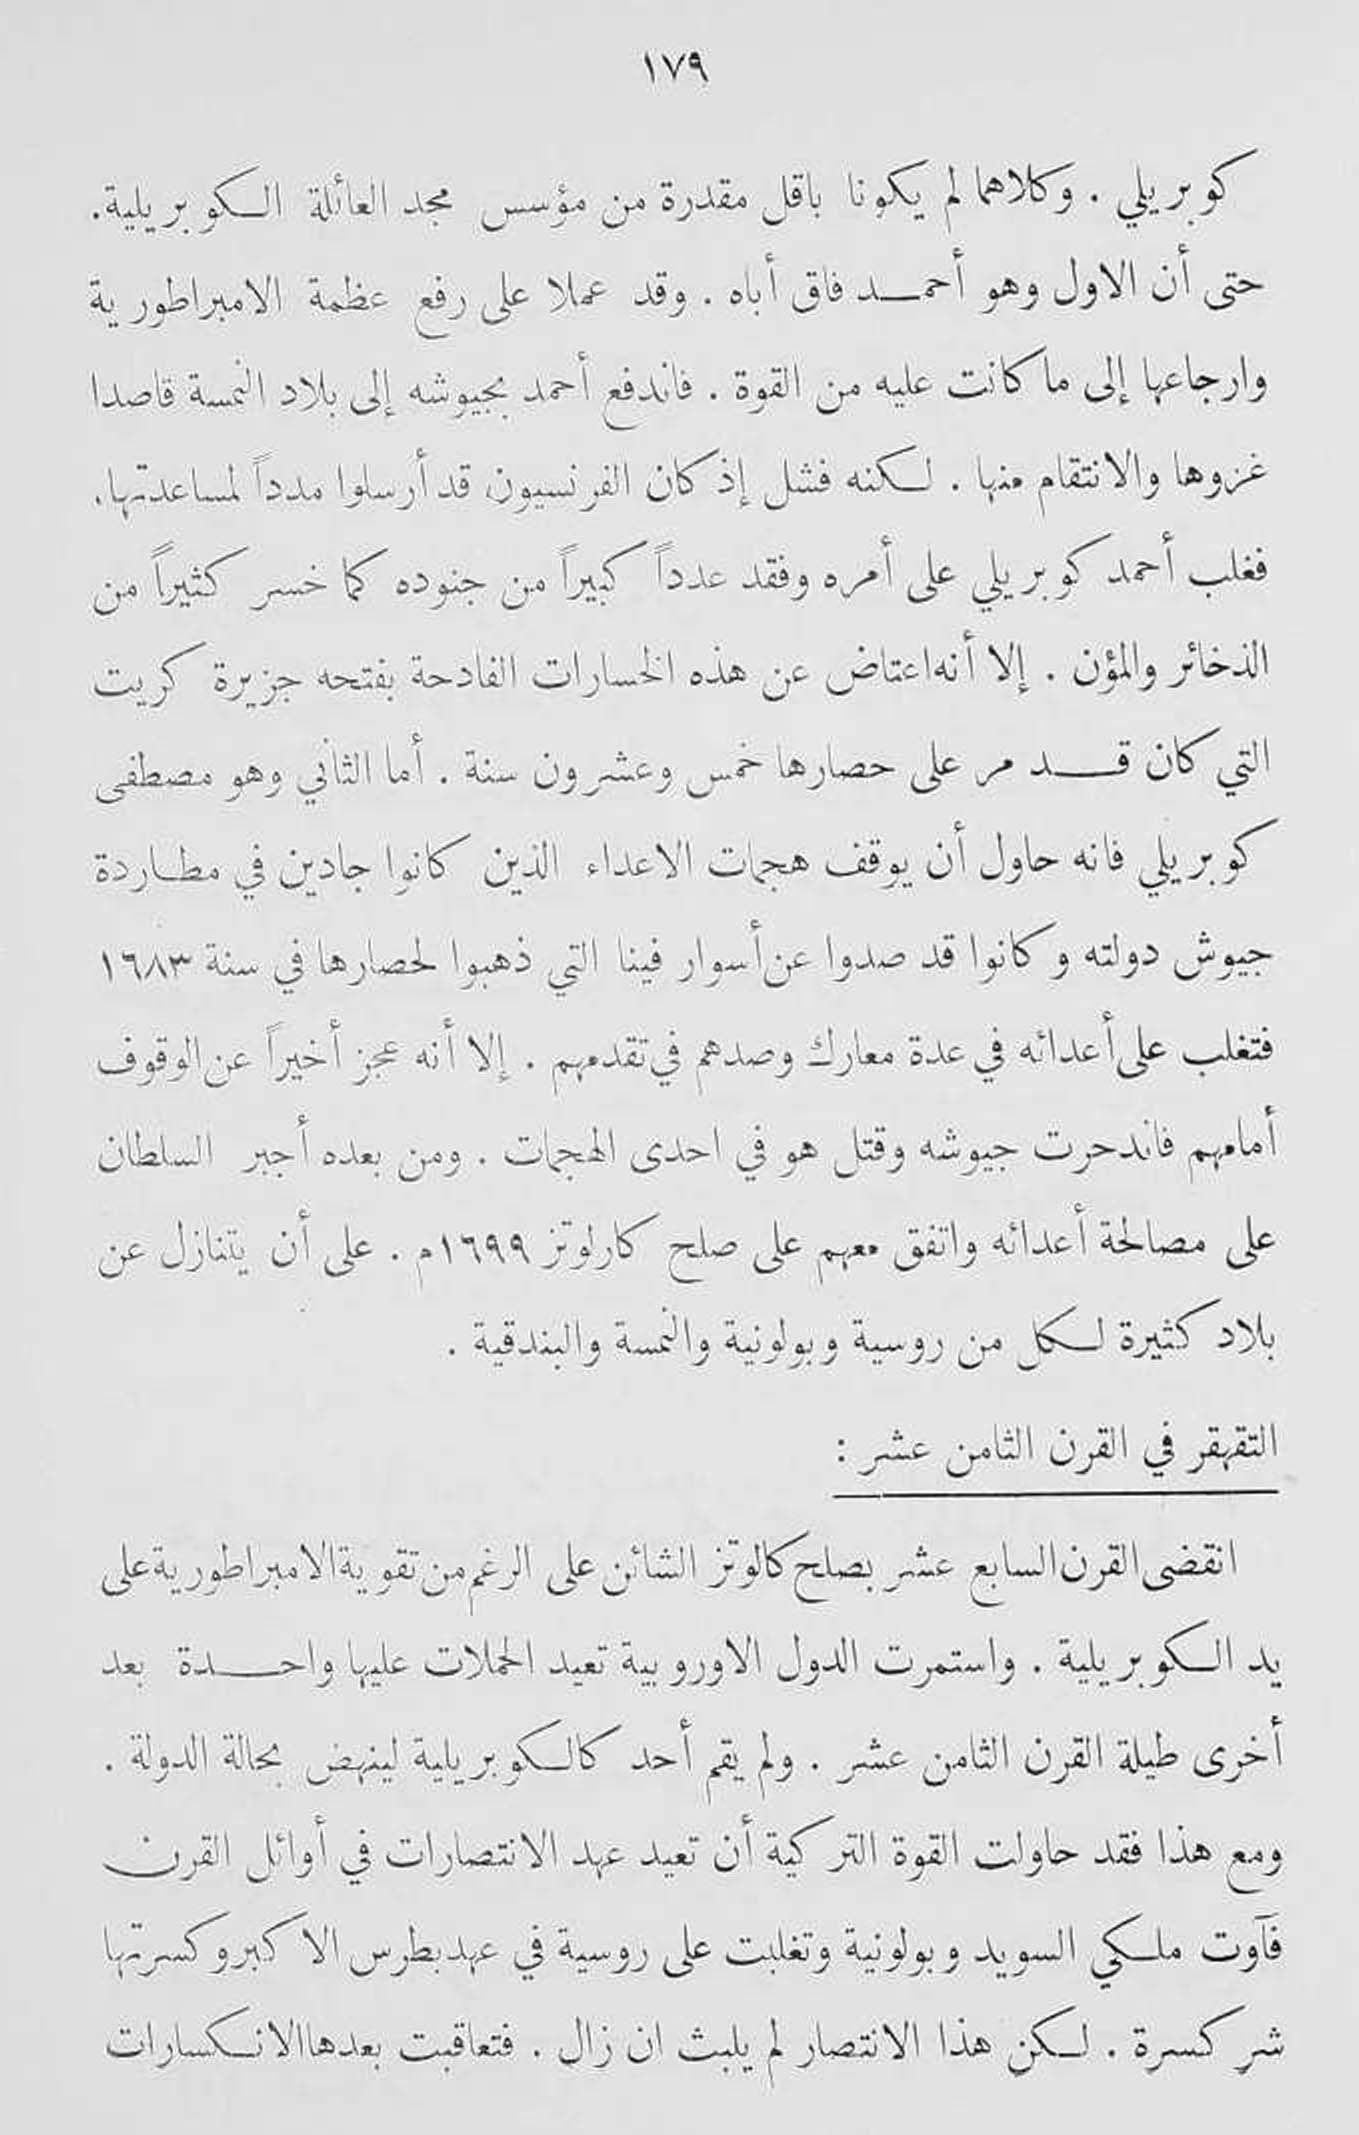 ١٧٩
كوبريلي . وكلاهما لم يكونا باقل مقدرة من مؤسس مجد العائلة الكوبريلية.
حتى أن الاول وهو أحمد فاق أباه . وقد عملا على رفع عظمة الامبراطورية
وارجاعها إلى ما كانت عليه من القوة . فاندفع أحمد بجيوشه إلى بلاد النمسة قاصدا
غزوها والانتقام منها . لكنه فشل إذ كان الفرنسيون قد أرسلوا مدداً لمساعدتها.
فغلب أحمد كوبريلي على أمره وفقد عدداً كبيراً من جنوده كما خسر كثيراً من
الذخائر والمؤن . إلا أنه اعتاض عن هذه الخسارات الفادحة بفتحه جزيرة كريت
التي كان قد مر على حصارها خمس وعشرون سنة . أما الثاني وهو مصطفى
كوبريلي فانه حاول أن يوقف هجمات الاعداء الذين كانوا جادين في مطاردة
جيوش دولته وكانوا قد صدوا عن أسوار فينا التي ذهبوا لحصارها في سنة ١٦٨٣
فتغلب على أعدائه في عدة معارك وصدهم في تقدمهم . إلا أنه عجز أخيراً عن الوقوف
أمامهم فاندحرت جيوشه وقتل هو في احدى الهجمات . ومن بعده أجبر السلطان
على مصالحة أعدائه واتفق معهم على صلح كارلوتز ١٦٩٩م . على أن يتنازل عن
بلاد كثيرة لكل من روسية وبولونية والنمسة والبندقية .
التقهقر في القرن الثامن عشر :
انقضى القرن السابع عشر بصلح كالوتز الشائن على الرغم من تقوية الامبراطورية على
يد الكوبريلية . واستمرت الدول الاوروبية تعيد الحملات عليها واحدة بعد
أخرى طيلة القرن الثامن عشر . ولم يقم أحد كالكوبريلية لينهض بحالة الدولة .
ومع هذا فقد حاولت القوة التركية أن تعيد عهد الانتصارات في أوائل القرن
فآوت ملكي السويد وبولونية وتغلبت على روسية في عهد بطرس الاكبر وكسرتها
شر كسرة . لكن هذا الانتصار لم يلبث ان زال . فتعاقبت بعدها الانكسارات